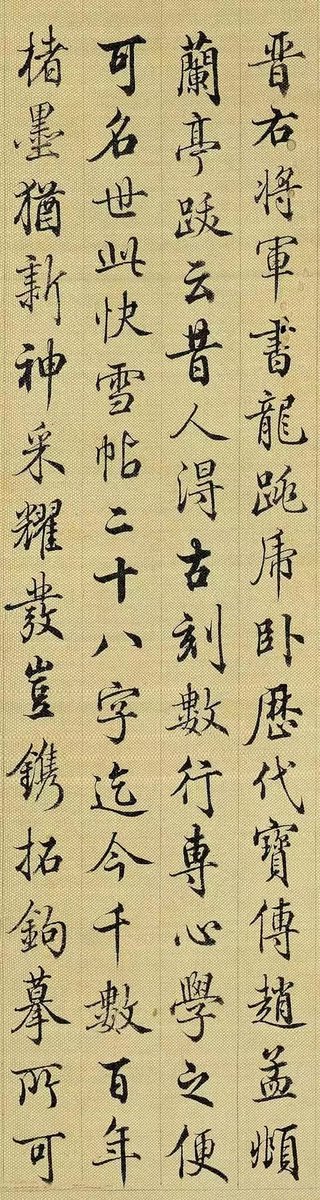 晋右將軍書龍跳虎卧歷代寶傳趙孟頫
蘭亭跋云昔人得古刻數行專心學之便
可名世此快雪帖二十八字迄今千數百年
楮墨猶新神采耀發豈鐫拓鉤摹所可